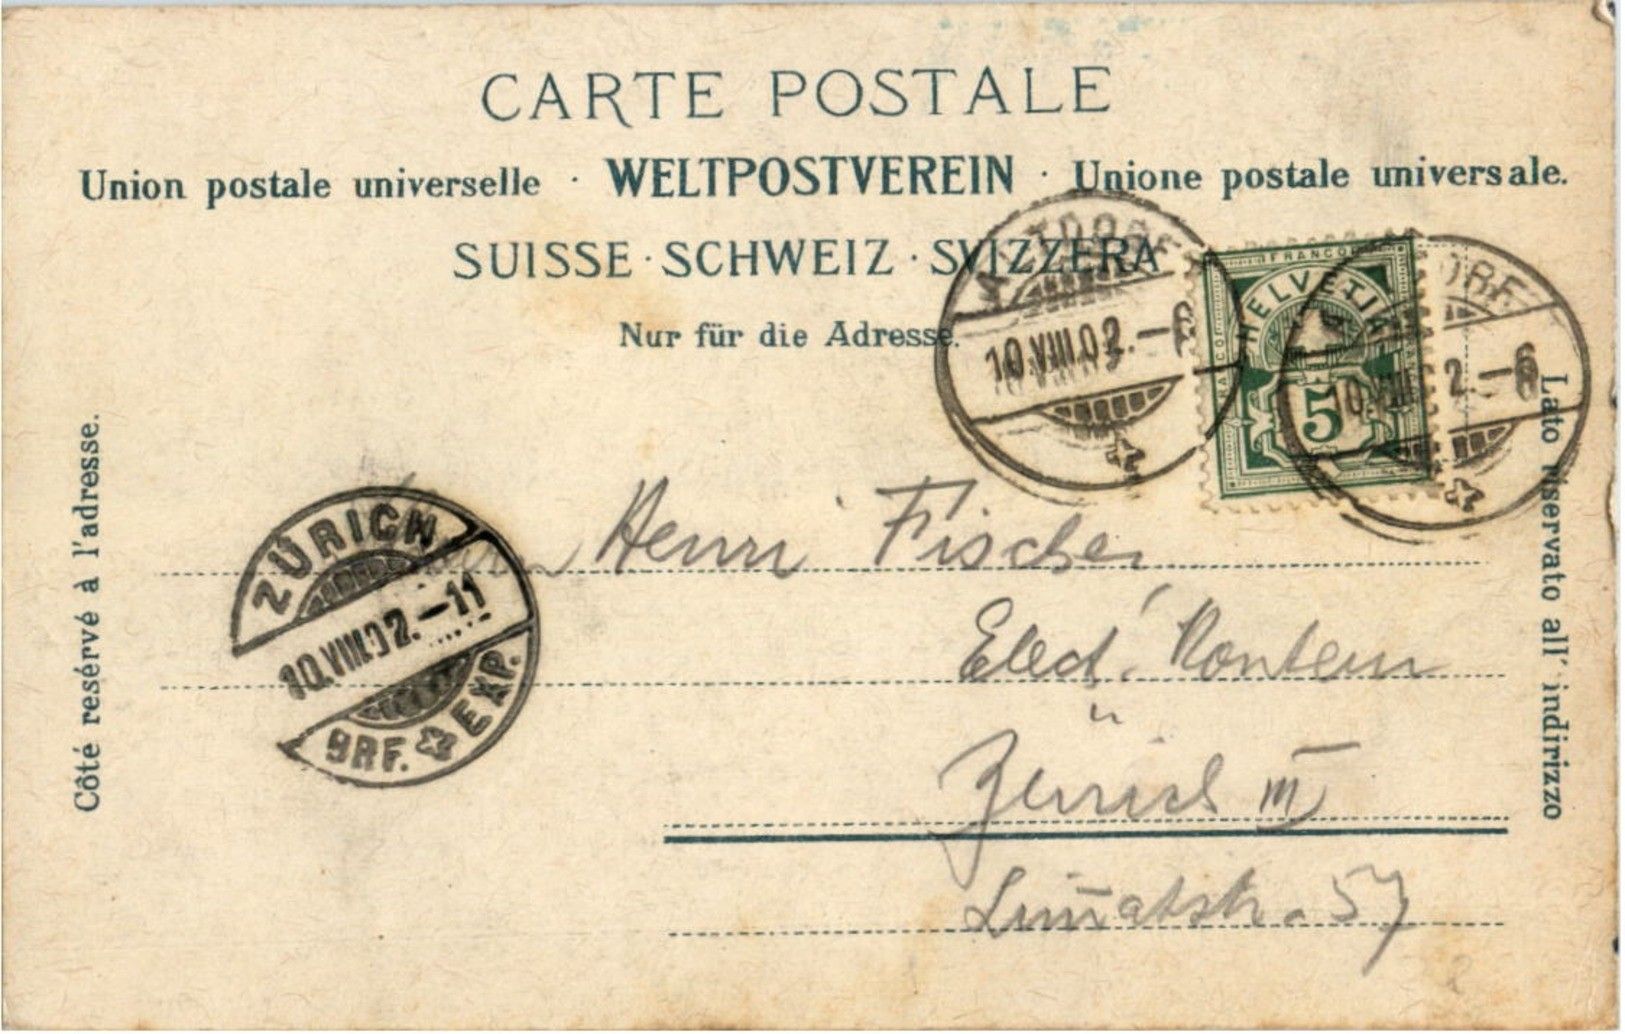 CARTE POSTALE
Union postale universelle · WELTPOSTVEREIN · Unione postale universale.
SUISSE · SCHWEIZ · SVIZZERA
Nur für die Adresse.
Côté resérvé à l'adresse.
Lato riservato all' indirizzo
ALTDORF
10.VIII.02.-6
FRANCO
HELVETIA
5
10.VIII 2.-6
ZÜRICH
10.VIII.02.-11
BRF. EXP.
Henri Fischer
Elect.
Zürich III
Lim̅atstr. 57